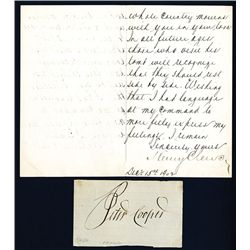 whole country mourns
with you in your loss
In all future ages
those who visit his
tomb will recognize
that they should rest
side by side. Wishing
that I had language
at my command to
more fully express my
feelings I remain
Sincerely yours
Henry Clews
Dec. 15th 1902
Peter Cooper